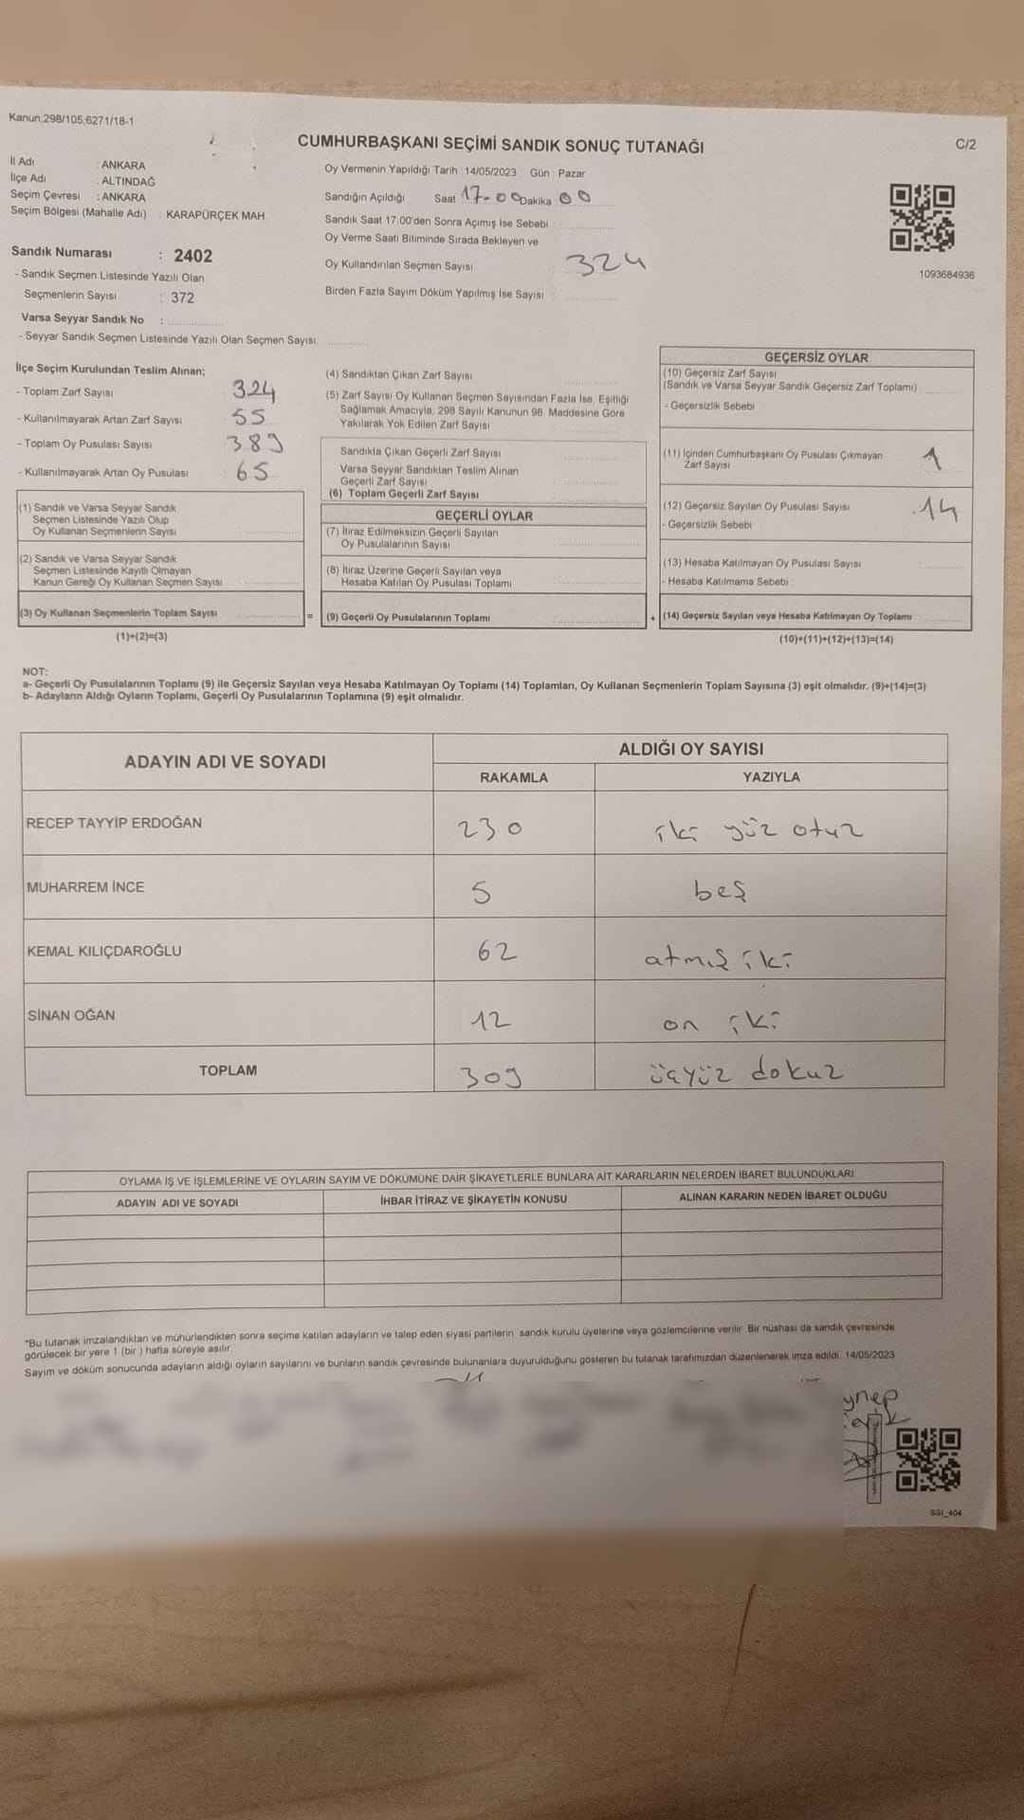 Kanun;298/105;6271/18-1
C/2
CUMHURBAŞKANI SEÇİMİ SANDIK SONUÇ TUTANAĞI
İl Adı : ANKARA
İlçe Adı : ALTINDAĞ
Seçim Çevresi : ANKARA
Seçim Bölgesi (Mahalle Adı) : KARAPÜRÇEK MAH.
Sandık Numarası : 2402
- Sandık Seçmen Listesinde Yazılı Olan
Seçmenlerin Sayısı : 372
Varsa Seyyar Sandık No :
- Seyyar Sandık Seçmen Listesinde Yazılı Olan Seçmen Sayısı:
Oy Vermenin Yapıldığı Tarih : 14/05/2023 Gün : Pazar
Sandığın Açıldığı Saat 17-00 Dakika 00
Sandık Saat 17:00'den Sonra Açımış İse Sebebi :
Oy Verme Saati Bitiminde Sırada Bekleyen ve
Oy Kullandırılan Seçmen Sayısı 324
Birden Fazla Sayım Döküm Yapılmış İse Sayısı :
1093684936
İlçe Seçim Kurulundan Teslim Alınan;
- Toplam Zarf Sayısı 324
- Kullanılmayarak Artan Zarf Sayısı 55
- Toplam Oy Pusulası Sayısı 389
- Kullanılmayarak Artan Oy Pusulası 65
(1) Sandık ve Varsa Seyyar Sandık
Seçmen Listesinde Yazılı Olup
Oy Kullanan Seçmenlerin Sayısı
(2) Sandık ve Varsa Seyyar Sandık
Seçmen Listesinde Kayıtlı Olmayan
Kanun Gereği Oy Kullanan Seçmen Sayısı
(3) Oy Kullanan Seçmenlerin Toplam Sayısı
(1)+(2)=(3)
(4) Sandıktan Çıkan Zarf Sayısı
(5) Zarf Sayısı Oy Kullanan Seçmen Sayısından Fazla İse, Eşitliği
Sağlamak Amacıyla, 298 Sayılı Kanunun 98. Maddesine Göre
Yakılarak Yok Edilen Zarf Sayısı
Sandıkta Çıkan Geçerli Zarf Sayısı
Varsa Seyyar Sandıktan Teslim Alınan
Geçerli Zarf Sayısı
(6) Toplam Geçerli Zarf Sayısı
GEÇERLİ OYLAR
(7) İtiraz Edilmeksizin Geçerli Sayılan
Oy Pusulalarının Sayısı
(8) İtiraz Üzerine Geçerli Sayılan veya
Hesaba Katılan Oy Pusulası Toplamı
= (9) Geçerli Oy Pusulalarının Toplamı
GEÇERSİZ OYLAR
(10) Geçersiz Zarf Sayısı
(Sandık ve Varsa Seyyar Sandık Geçersiz Zarf Toplamı)
- Geçersizlik Sebebi :
(11) İçinden Cumhurbaşkanı Oy Pusulası Çıkmayan
Zarf Sayısı 1
(12) Geçersiz Sayılan Oy Pusulası Sayısı 14
- Geçersizlik Sebebi :
(13) Hesaba Katılmayan Oy Pusulası Sayısı
- Hesaba Katılmama Sebebi :
+ (14) Geçersiz Sayılan veya Hesaba Katılmayan Oy Toplamı
(10)+(11)+(12)+(13)=(14)
NOT:
a- Geçerli Oy Pusulalarının Toplamı (9) ile Geçersiz Sayılan veya Hesaba Katılmayan Oy Toplamı (14) Toplamları, Oy Kullanan Seçmenlerin Toplam Sayısına (3) eşit olmalıdır. (9)+(14)=(3)
b- Adayların Aldığı Oyların Toplamı, Geçerli Oy Pusulalarının Toplamına (9) eşit olmalıdır.
ADAYIN ADI VE SOYADI
ALDIĞI OY SAYISI
RAKAMLA YAZIYLA
RECEP TAYYİP ERDOĞAN 230 iki yüz otuz
MUHARREM İNCE 5 beş
KEMAL KILIÇDAROĞLU 62 atmış iki
SİNAN OĞAN 12 on iki
TOPLAM 309 üçyüz dokuz
OYLAMA İŞ VE İŞLEMLERİNE VE OYLARIN SAYIM VE DÖKÜMÜNE DAİR ŞİKAYETLERLE BUNLARA AİT KARARLARIN NELERDEN İBARET BULUNDUKLARI
ADAYIN ADI VE SOYADI İHBAR İTİRAZ VE ŞİKAYETİN KONUSU ALINAN KARARIN NEDEN İBARET OLDUĞU
*Bu tutanak imzalandıktan ve mühürlendikten sonra seçime katılan adayların ve talep eden siyasi partilerin sandık kurulu üyelerine veya gözlemcilerine verilir. Bir nüshası da sandık çevresinde
görülecek bir yere 1 (bir) hafta süreyle asılır.
Sayım ve döküm sonucunda adayların aldığı oyların sayılarını ve bunların sandık çevresinde bulunanlara duyurulduğunu gösteren bu tutanak tarafımızdan düzenlenerek imza edildi. 14/05/2023
ynep
SGİ_404